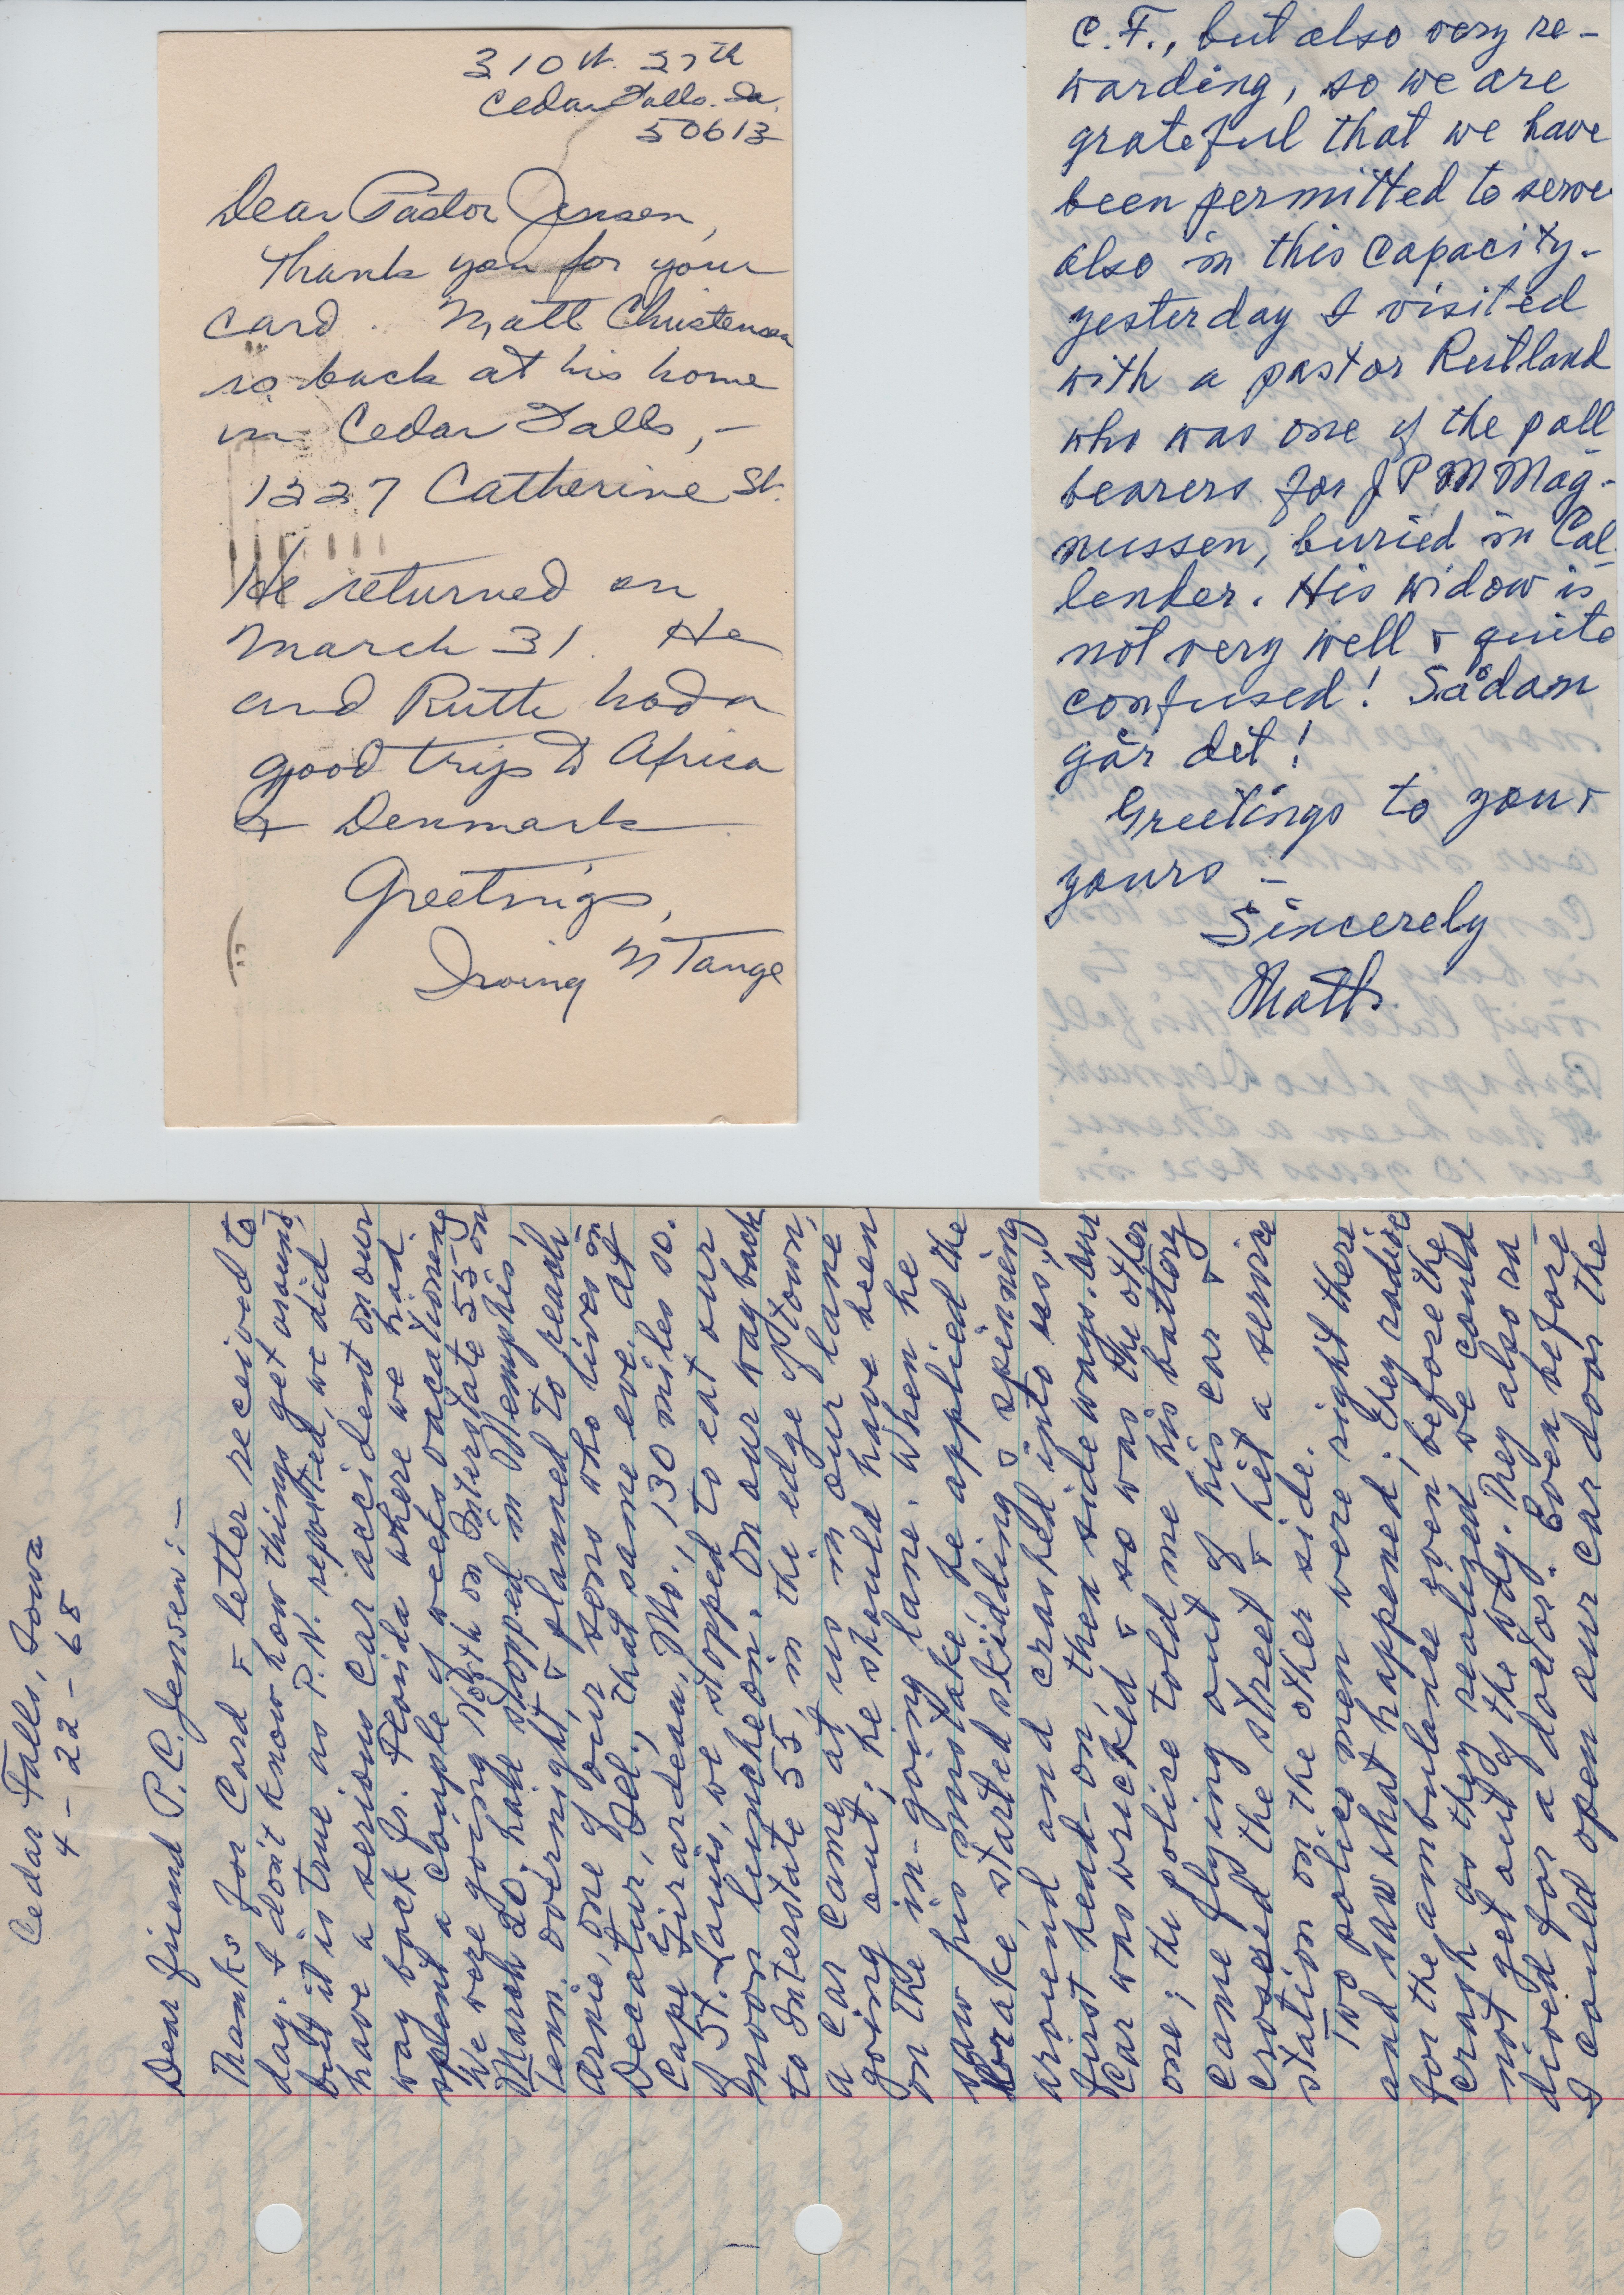 310 W. 27th
Cedar Falls. Ia.
50613
Dear Pastor Jensen,
Thank you for your
card. Matt Christensen
is back at his home
in Cedar Falls, -
1227 Catherine St.
He returned on
March 31. He
and Ruth had a
good trip to Africa
& Denmark.
Greetings,
Irving M Tange
C.F., but also very re-
warding, so we are
grateful that we have
been permitted to serve
also in this capacity.
yesterday I visited
with a pastor Rutland
who was one of the pall
bearers for J P M Mag-
nussen, buried in Cal-
lender. His widow is
not very well & quite
confused! Sådan
går det!
Greetings to you &
yours -
Sincerely
Matth.
Cedar Falls, Iowa
4-22-68
Dear friend P.C. Jensen:-
Thanks for Card & letter received to
day. I don't know how things get around,
but it is true as P.N. reported, we did
have a serious car accident on our
way back fr. Florida where we had
spent a couple of weeks vacationing
We were going North on Interstate 55-
March 20, had stopped in Memphis,
Tenn. overnight, & planned to reach
Arnie, one of our sons who lives in
Decatur, Ill., that same eve. At
Cape Girardeau, Mo., 130 miles so.
of St. Louis, we stopped to eat our
noon luncheon. On our way back
to Interstate 55, in the edge of town,
a car came at us in our lane
going out; he should have been
on the in-going lane. When he
saw his mistake, he applied the
brake, started skidding & spinning
around and crashed into us,
first head-on, then sideways. Our
Car was wrecked & so was the other
one; the police told me his battery
came flying out of his car &
crossed the street & hit a service
station on the other side.
Two police men were right there
and saw what happened; they radioed
for the ambulance even before the
crash as they realized we could
not get out of the way. They also ra
dioed for a doctor. Even before
I could open our car door the